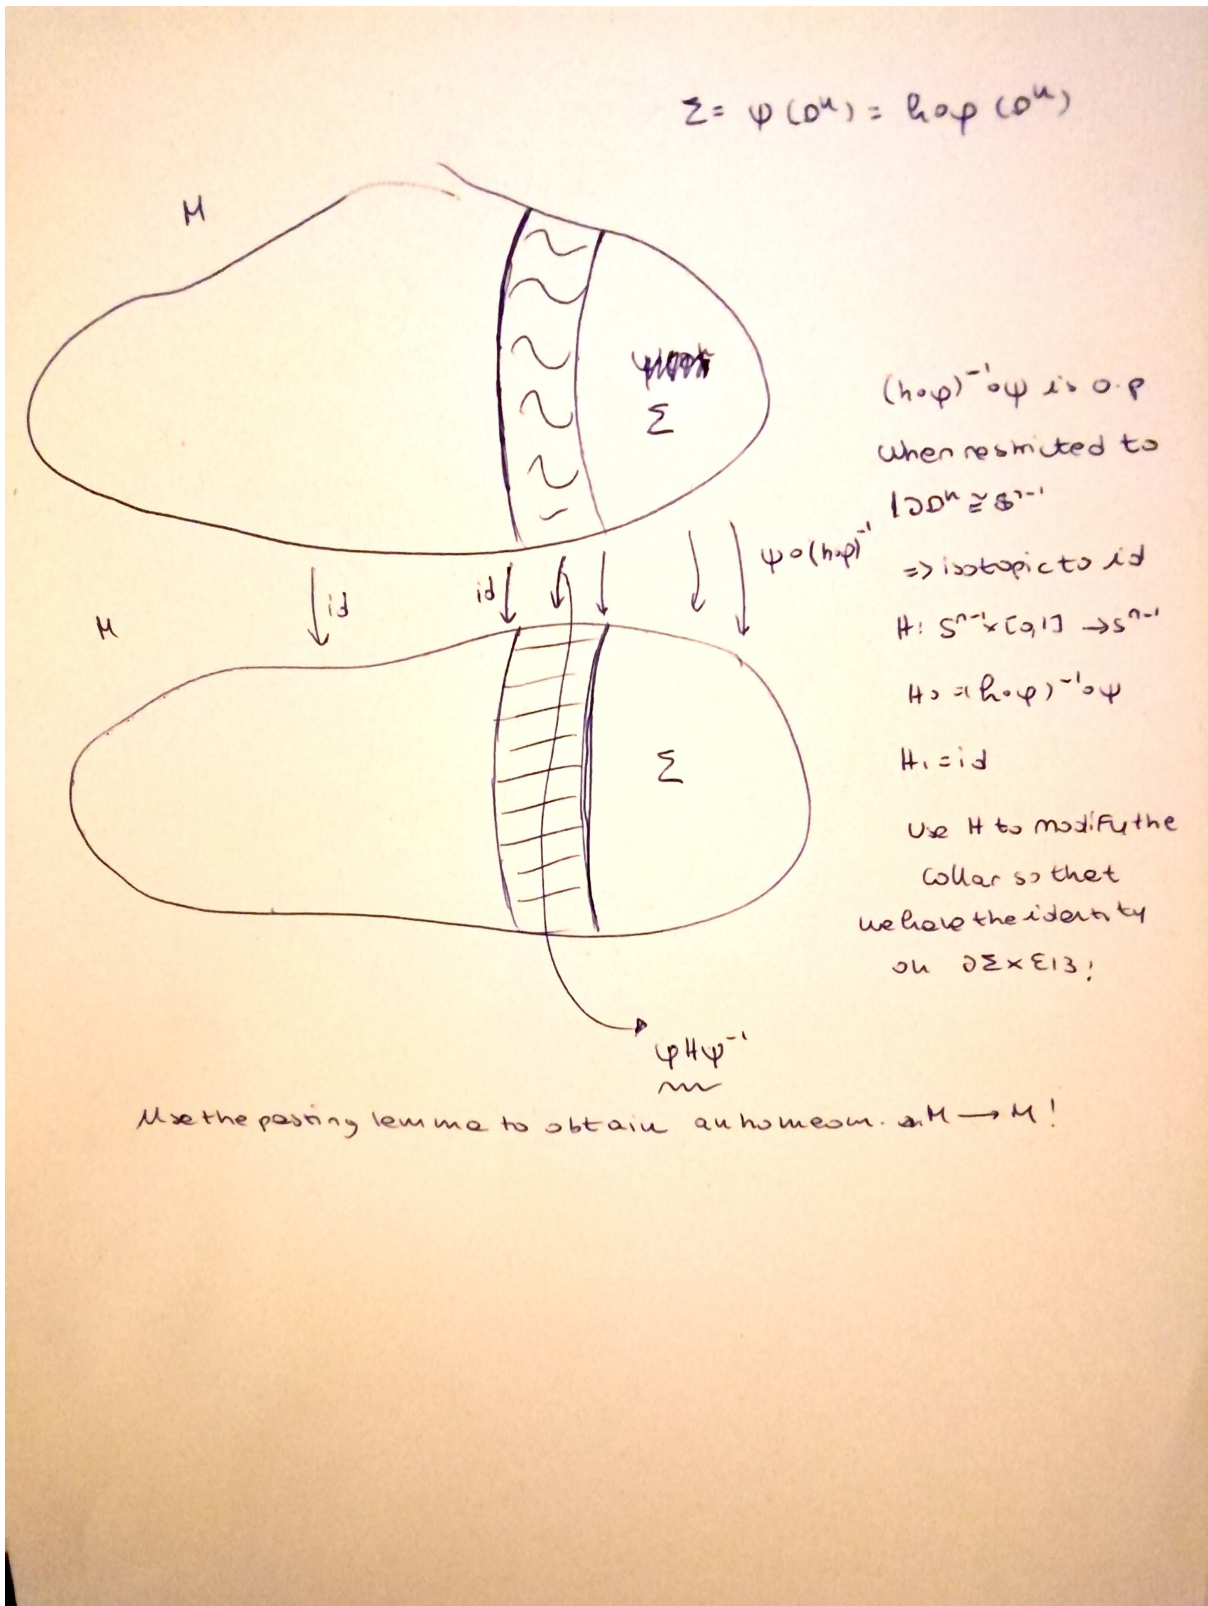 Σ = ψ(Dⁿ) = h∘φ(Dⁿ)
M
Σ
(h∘φ)⁻¹∘ψ is o.p
when restricted to
|∂Dⁿ ≅ Sⁿ⁻¹
ψ∘(h∘φ)⁻¹
=> isotopic to id
id
id
M
H: Sⁿ⁻¹×[0,1] → Sⁿ⁻¹
H₀ = (h∘φ)⁻¹∘ψ
H₁ = id
Σ
Use H to modify the
collar so that
we have the identity
on ∂Σ×{1}!
φHψ⁻¹
Use the pasting lemma to obtain an homeom. M → M!